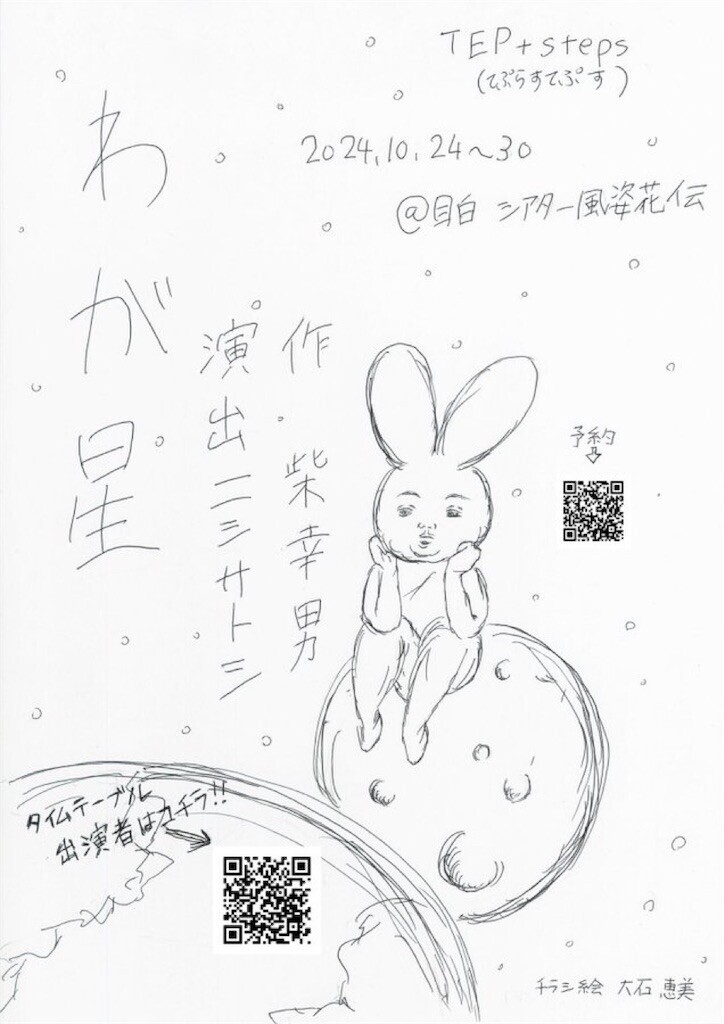 TEP+steps
(てぷらすてぷす)
2024.10.24~30
@目白 シアター風姿花伝
わが星
作 柴幸男
演出 ニシサトシ
予約
タイムテーブル
出演者はコチラ!!
チラシ絵 大石 恵美